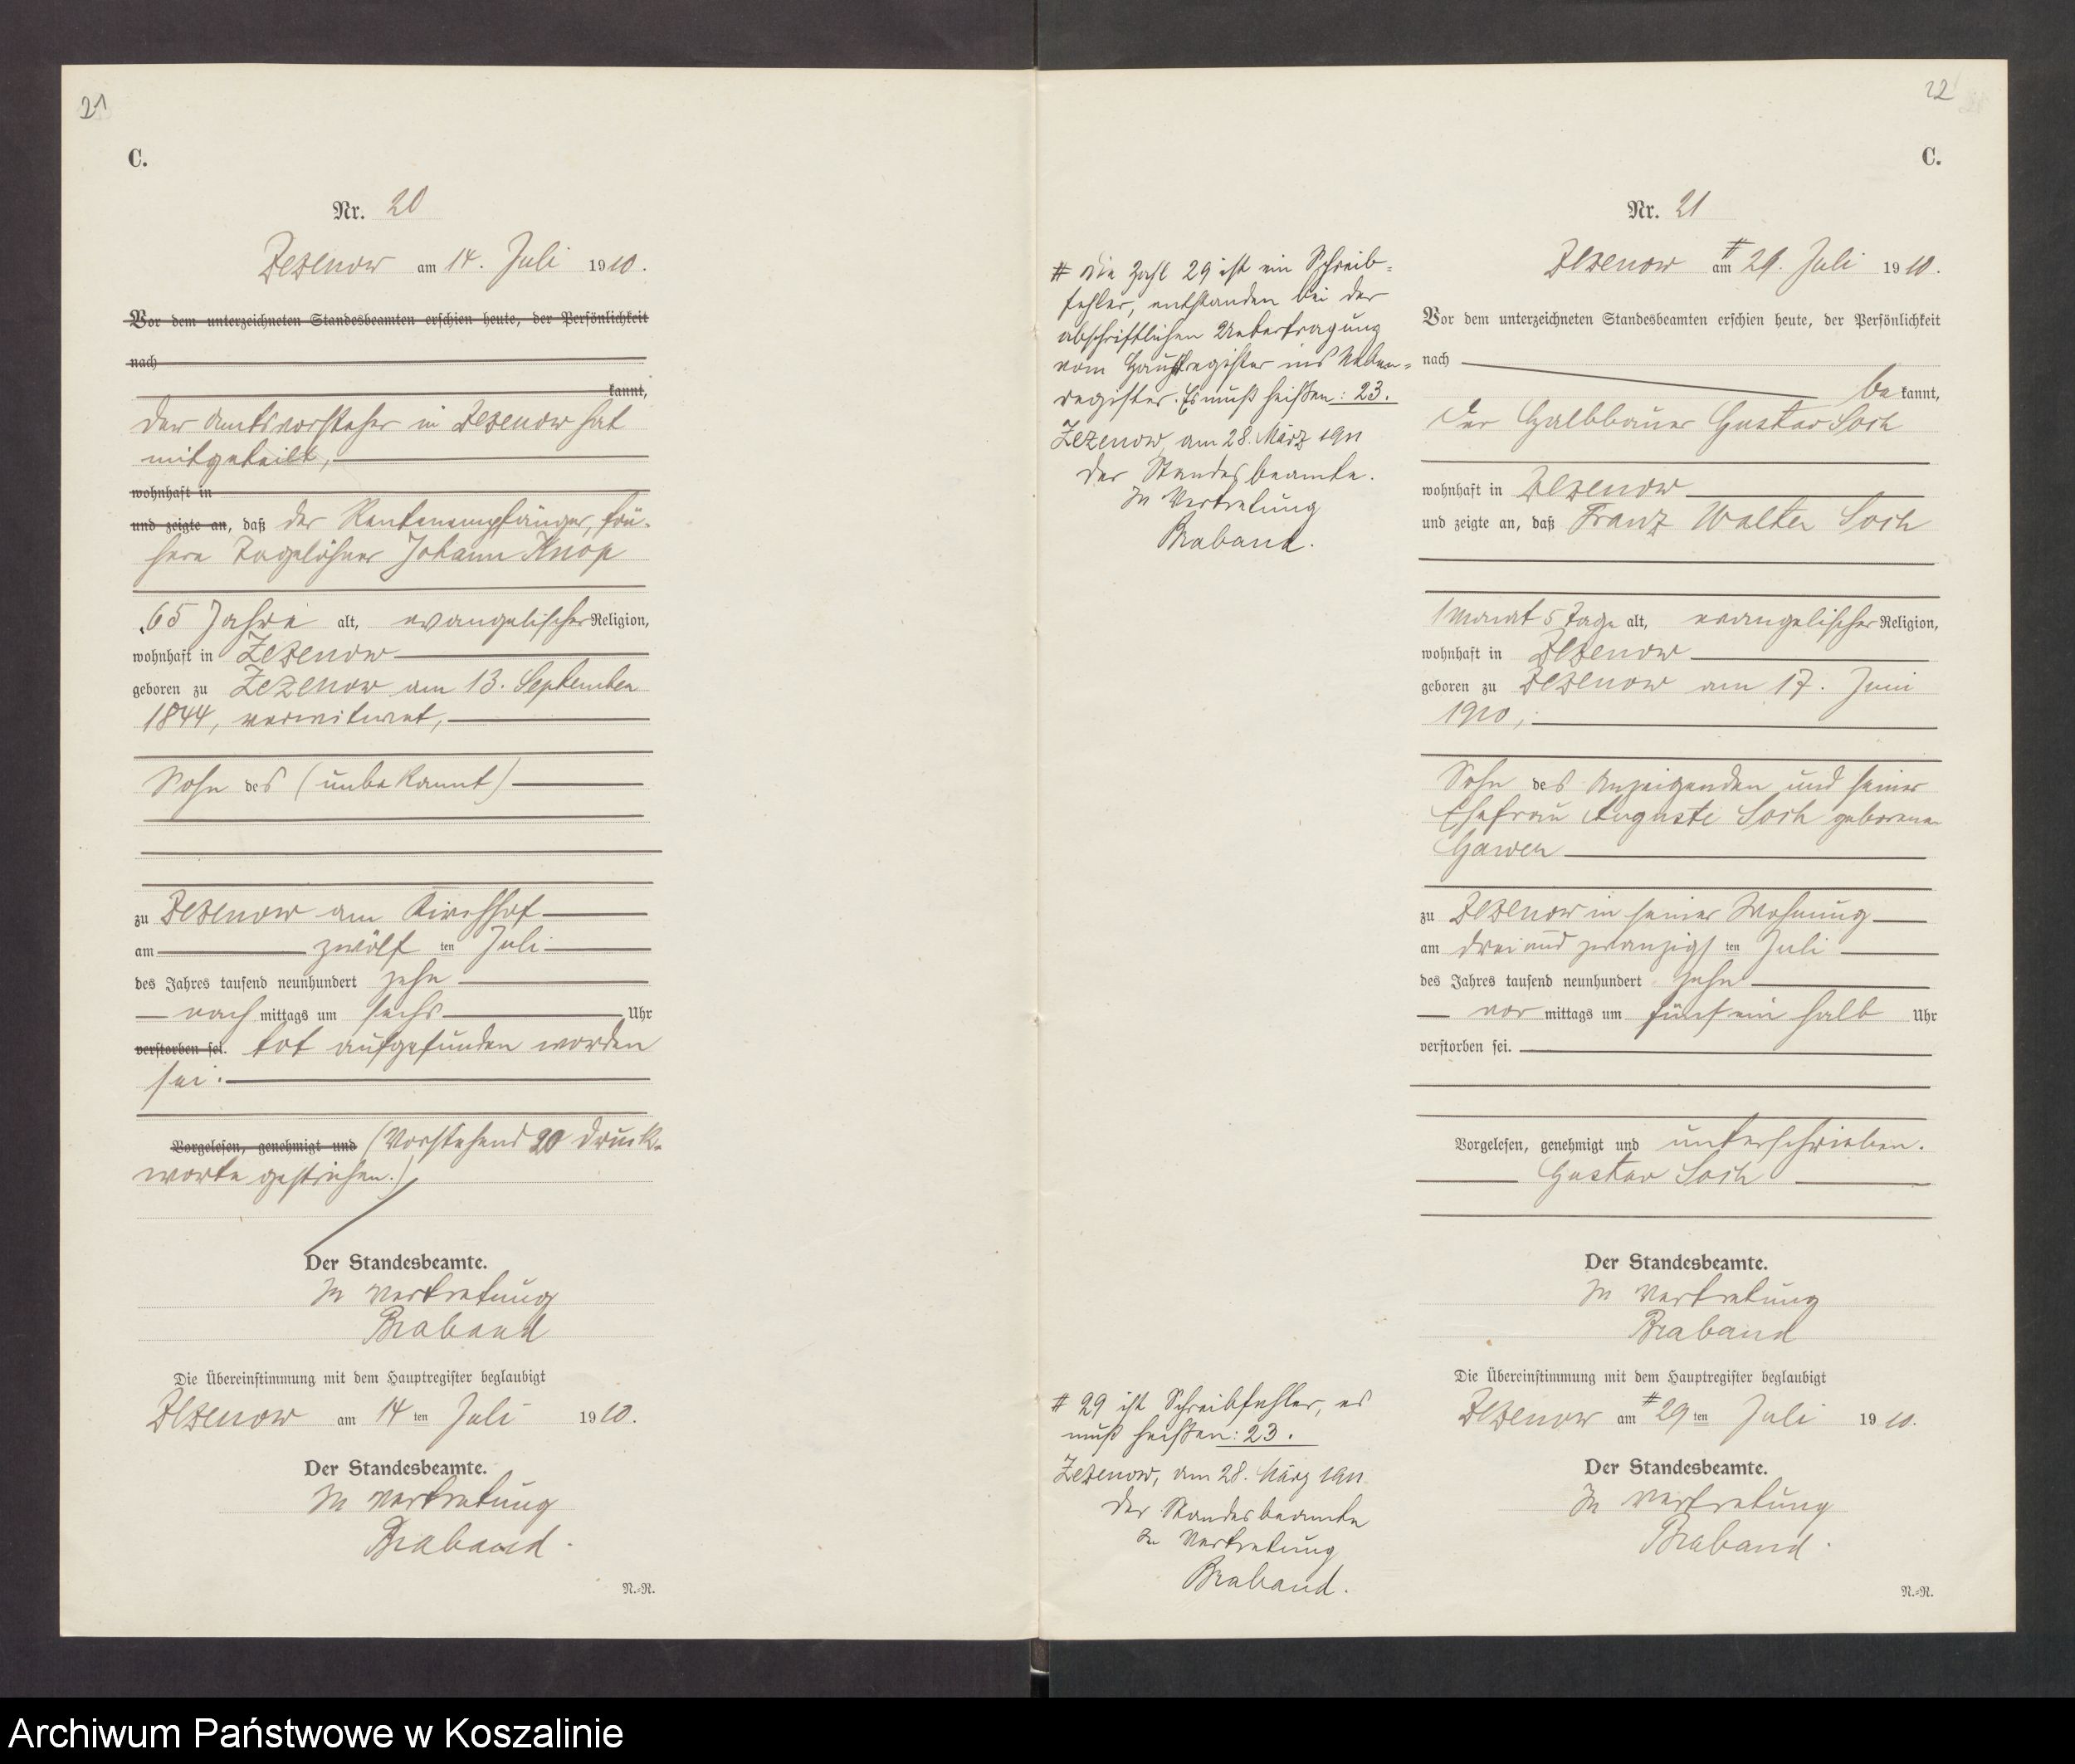 21
C.
Nr. 20
Zezenow am 14. Juli 1910.
Vor dem unterzeichneten Standesbeamten erschien heute, der Persönlichkeit
nach
kannt,
Der Amtsvorsteher in Zezenow hat
mitgeteilt,
wohnhaft in
und zeigte an, daß der Rentenempfänger, frü-
here Tagelöhner Johann Knop
65 Jahre alt, evangelischer Religion,
wohnhaft in Zezenow
geboren zu Zezenow am 13. September
1844, verwitwet,
Sohn des (unbekannt)
zu Zezenow am Kirchhof
am zwölf ten Juli
des Jahres tausend neunhundert zehn
nach mittags um sechs Uhr
verstorben sei. tot aufgefunden worden
sei.
Vorgelesen, genehmigt und (Vorstehend 20 Druck-
worte gestrichen.)
Der Standesbeamte.
In Vertretung
Braband
Die Übereinstimmung mit dem Hauptregister beglaubigt
Zezenow am 14 ten Juli 1910.
Der Standesbeamte.
In Vertretung
Braband.
N.-R.
22
C.
Nr. 21
Zezenow am # 29. Juli 1910.
# Die Zahl 29 ist ein Schreib-
fehler, entstanden bei der
abschriftlichen Uebertragung
vom Hauptregister ins Neben-
register. Es muß heißen: 23.
Zezenow, am 28. März 1911
Der Standesbeamte.
In Vertretung
Braband.
Vor dem unterzeichneten Standesbeamten erschien heute, der Persönlichkeit
nach
be kannt,
Der Halbbauer Gustav Soch
wohnhaft in Zezenow
und zeigte an, daß Franz Walter Soch
1 Monat 5 Tage alt, evangelischer Religion,
wohnhaft in Zezenow
geboren zu Zezenow am 17. Juni
1910,
Sohn des Anzeigenden und seiner
Ehefrau Auguste Soch geborenen
Gawen
zu Zezenow in seiner Wohnung
am drei und zwanzigs ten Juli
des Jahres tausend neunhundert zehn
vor mittags um fünf ein halb Uhr
verstorben sei.
Vorgelesen, genehmigt und unterschrieben.
Gustav Soch
Der Standesbeamte.
In Vertretung
Braband
Die Übereinstimmung mit dem Hauptregister beglaubigt
Zezenow am # 29 ten Juli 1910.
Der Standesbeamte.
In Vertretung
Braband.
# 29 ist Schreibfehler, es
muß heißen: 23.
Zezenow, am 28. März 1911
Der Standesbeamte
In Vertretung
Braband.
N.-R.
Archiwum Państwowe w Koszalinie